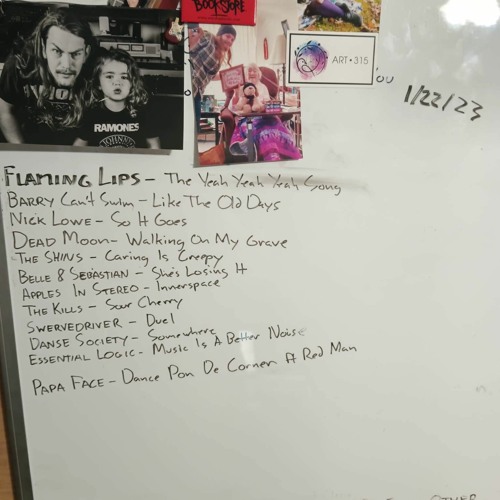 BOOKSTORE
ART•315
OU
1/22/23
RAMONES
JOHNNY
FLAMING LIPS - The Yeah Yeah Yeah Song
BARRY Can't Swim - Like The Old Days
NICK LOWE - So It Goes
DEAD MOON - Walking On My Grave
THE SHINS - Caring Is Creepy
BELLE & SEBASTIAN - She's Losing It
APPLES IN STEREO - Innerspace
THE KILLS - Sour Cherry
SWERVEDRIVER - Duel
DANSE SOCIETY - Somewhere
ESSENTIAL LOGIC - Music Is A Better Noise
PAPA FACE - Dance Pon De Corner ft Red Man
OTHER